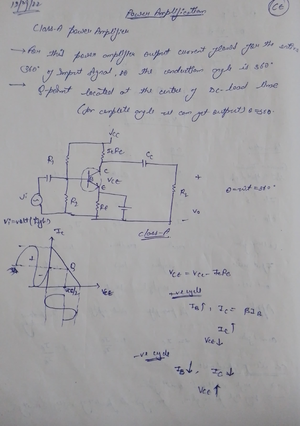 Power Amplification
Class-A power Amplifier
→ For this power amplifier output current flows for the entire
(360° of Input Signal, so the conduction angle is 360°
→ Q-point located at the center of DC-load line
(for complete angle we can get output)
VCC
R1
ICRC
CC
C
B
VCE
E
R2
RE
RL
+
Vi
V0
Class-A
IC
VCE
VCC/2
VCE = VCC - ICRC
+ve cycle
IB↑, IC = βIB
IC↑
VCE↓
-ve cycle
IB↓, IC↓
VCE↑